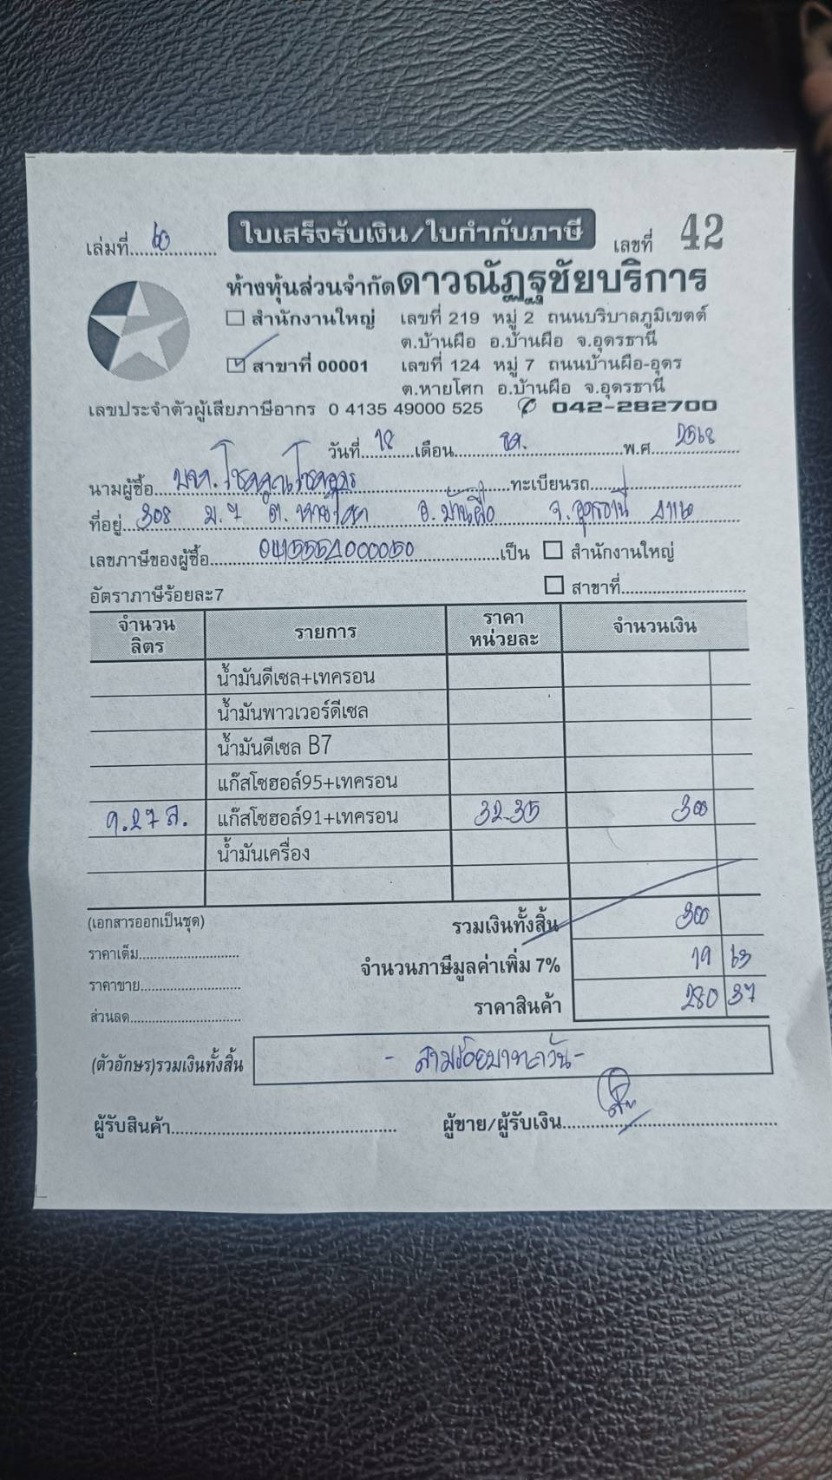 ใบเสร็จรับเงิน/ใบกำกับภาษี
เล่มที่ 60 เลขที่ 42
ห้างหุ้นส่วนจำกัดดาวณัฏฐชัยบริการ
สำนักงานใหญ่ เลขที่ 219 หมู่ 2 ถนนบริบาลภูมิเขตต์
ต.บ้านผือ อ.บ้านผือ จ.อุดรธานี
สาขาที่ 00001 เลขที่ 124 หมู่ 7 ถนนบ้านผือ-อุดร
ต.หายโศก อ.บ้านผือ จ.อุดรธานี
เลขประจำตัวผู้เสียภาษีอากร 0 4135 49000 525 ✆ 042-282700
วันที่ 12 เดือน พ.ศ. 2568
นามผู้ซื้อ ทะเบียนรถ
ที่อยู่ 308 ม.7 ต.หายโศก อ.บ้านผือ จ.อุดรธานี
เลขภาษีของผู้ซื้อ เป็น สำนักงานใหญ่
อัตราภาษีร้อยละ7 สาขาที่
จำนวนลิตร รายการ ราคาหน่วยละ จำนวนเงิน
น้ำมันดีเซล+เทครอน
น้ำมันพาวเวอร์ดีเซล
น้ำมันดีเซล B7
แก๊สโซฮอล์95+เทครอน
9.27 ล. แก๊สโซฮอล์91+เทครอน 32.35 300
น้ำมันเครื่อง
(เอกสารออกเป็นชุด) รวมเงินทั้งสิ้น 300
ราคาเต็ม
จำนวนภาษีมูลค่าเพิ่ม 7% 19 63
ราคาขาย
ราคาสินค้า 280 37
ส่วนลด
(ตัวอักษร)รวมเงินทั้งสิ้น - สามร้อยบาทถ้วน -
ผู้รับสินค้า ผู้ขาย/ผู้รับเงิน